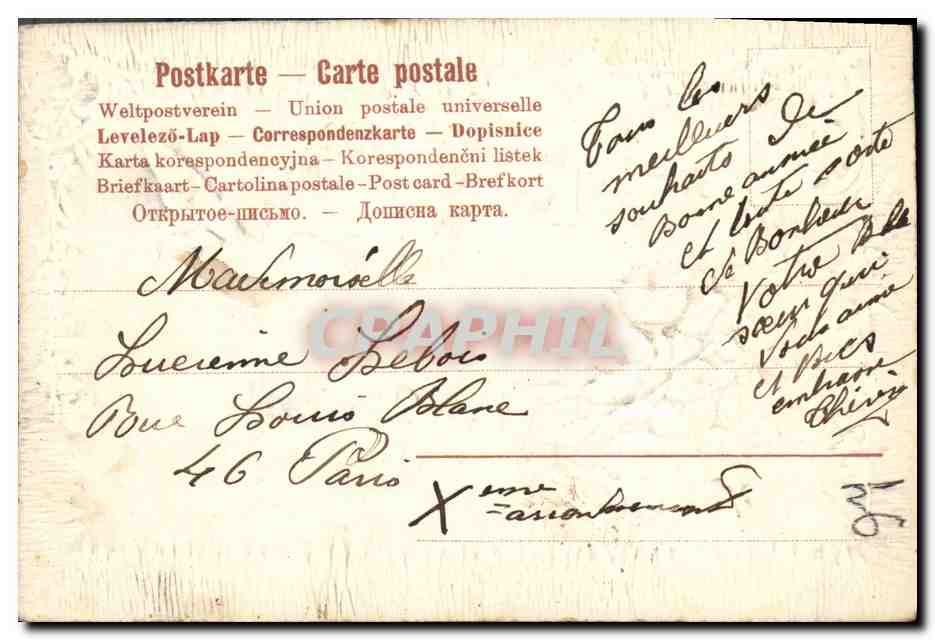 Postkarte — Carte postale
Weltpostverein — Union postale universelle
Levelező-Lap — Correspondenzkarte — Dopisnice
Karta korespondencyjna – Korespondenční listek
Briefkaart – Cartolina postale – Post card – Brefkort
Открытое-письмо. — Дописна карта.
Tous les
meilleurs
souhaits de
Bonne année
et toute sorte
de Bonheur
Votre
sœur qui
vous aime
et Bies
embrasse
Mademoiselle
Lucienne Lebois
Rue Louis Blanc
46 Paris
Xeme arrondissement
CPAPHIL